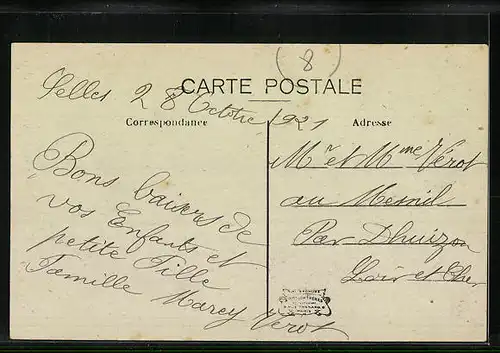 8
CARTE POSTALE
Selles 28 Octobre 1921
Correspondance
Adresse
Bons baisers de
vos Enfants et
petite Fille
Famille Marcy Verot
Mr et Mme Verot
au Mesnil
Par Dhuizon
Loir et Cher